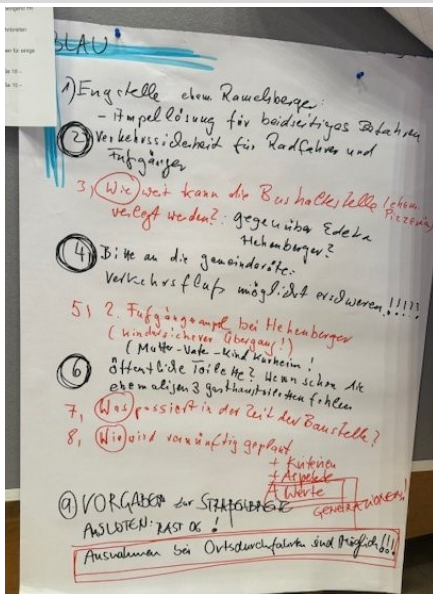 BLAU
1) Engstelle ehem Ramelsberger:
- Ampellösung für beidseitiges Befahren
2) Verkehrssicherheit für Radfahrer und
Fußgänger
3) Wie weit kann die Bushaltestelle (ehem
Pizzeria)
verlegt werden? gegenüber Edeka
Hehenberger?
4) Bitte an die gemeinderäte:
Verkehrsfluß möglichst erschweren!!!!!
5) 2. Fußgängerampel bei Hehenberger
(Kindersicherer Übergang!)
(Mutter-Vater-Kind Kurheim!
6 öffentliche Toilette? Wenn schon die
ehemaligen 3 gasthaustoiletten fehlen
7, Was passiert in der Zeit der Baustelle?
8, Wie wird vernünftig geplant
+ Kriterien
+ Aspekte
+ Werte
GENERATIONEN!
9 VORGABEN zur STRAßENBREITE
AUSLOTEN: RAST 06!
Ausnahmen bei Ortsdurchfahrten sind Möglich!!!